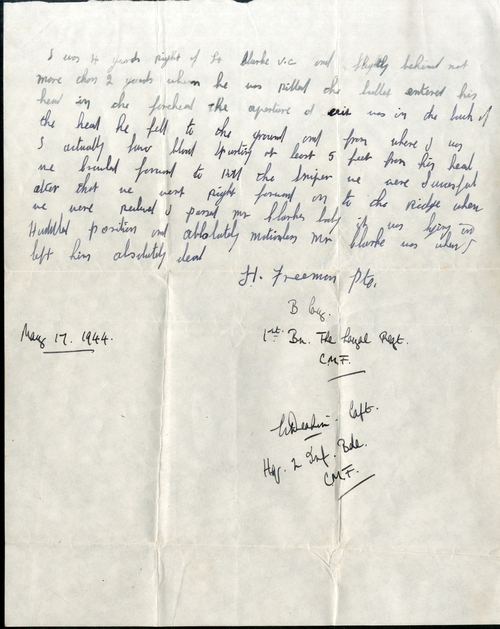 I was 4 yards right of Lt Clarke V.C and slightly behind not
more than 2 yards when he was killed the bullet entered his
head in the forehead the aperture of exit was in the back of
the head he fell to the ground and from where I was
I actually saw blood spurting at least 5 feet from his head
we crawled forward to kill the sniper we were sucessful
after that we went right forward on to the ridge when
we were relieved I passed Mr Clarkes body it was lying in
Huddled position and absolutely motionless Mr Clarke was when I
left him absolutely dead
H. Freeman Pte.
B Coy.
May 17. 1944.
1st Bn. The Loyal Regt.
C.M.F.
Capt.
Hq. 2 Inf. Bde.
C.M.F.